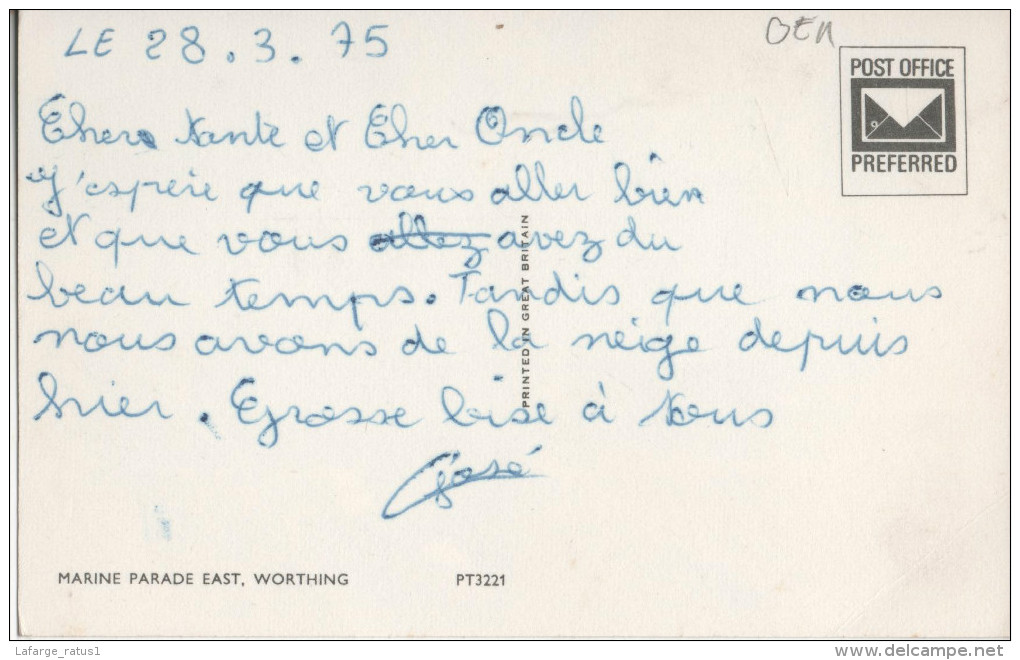 LE 28.3.75
POST OFFICE
PREFERRED
Chere tante et Cher Oncle
J'espère que vous aller bien
et que vous allez avez du
beau temps. Tandis que nous
nous avons de la neige depuis
hier. Grosse bise à tous
José
PRINTED IN GREAT BRITAIN
MARINE PARADE EAST, WORTHING PT3221
Lafarge_ratus1